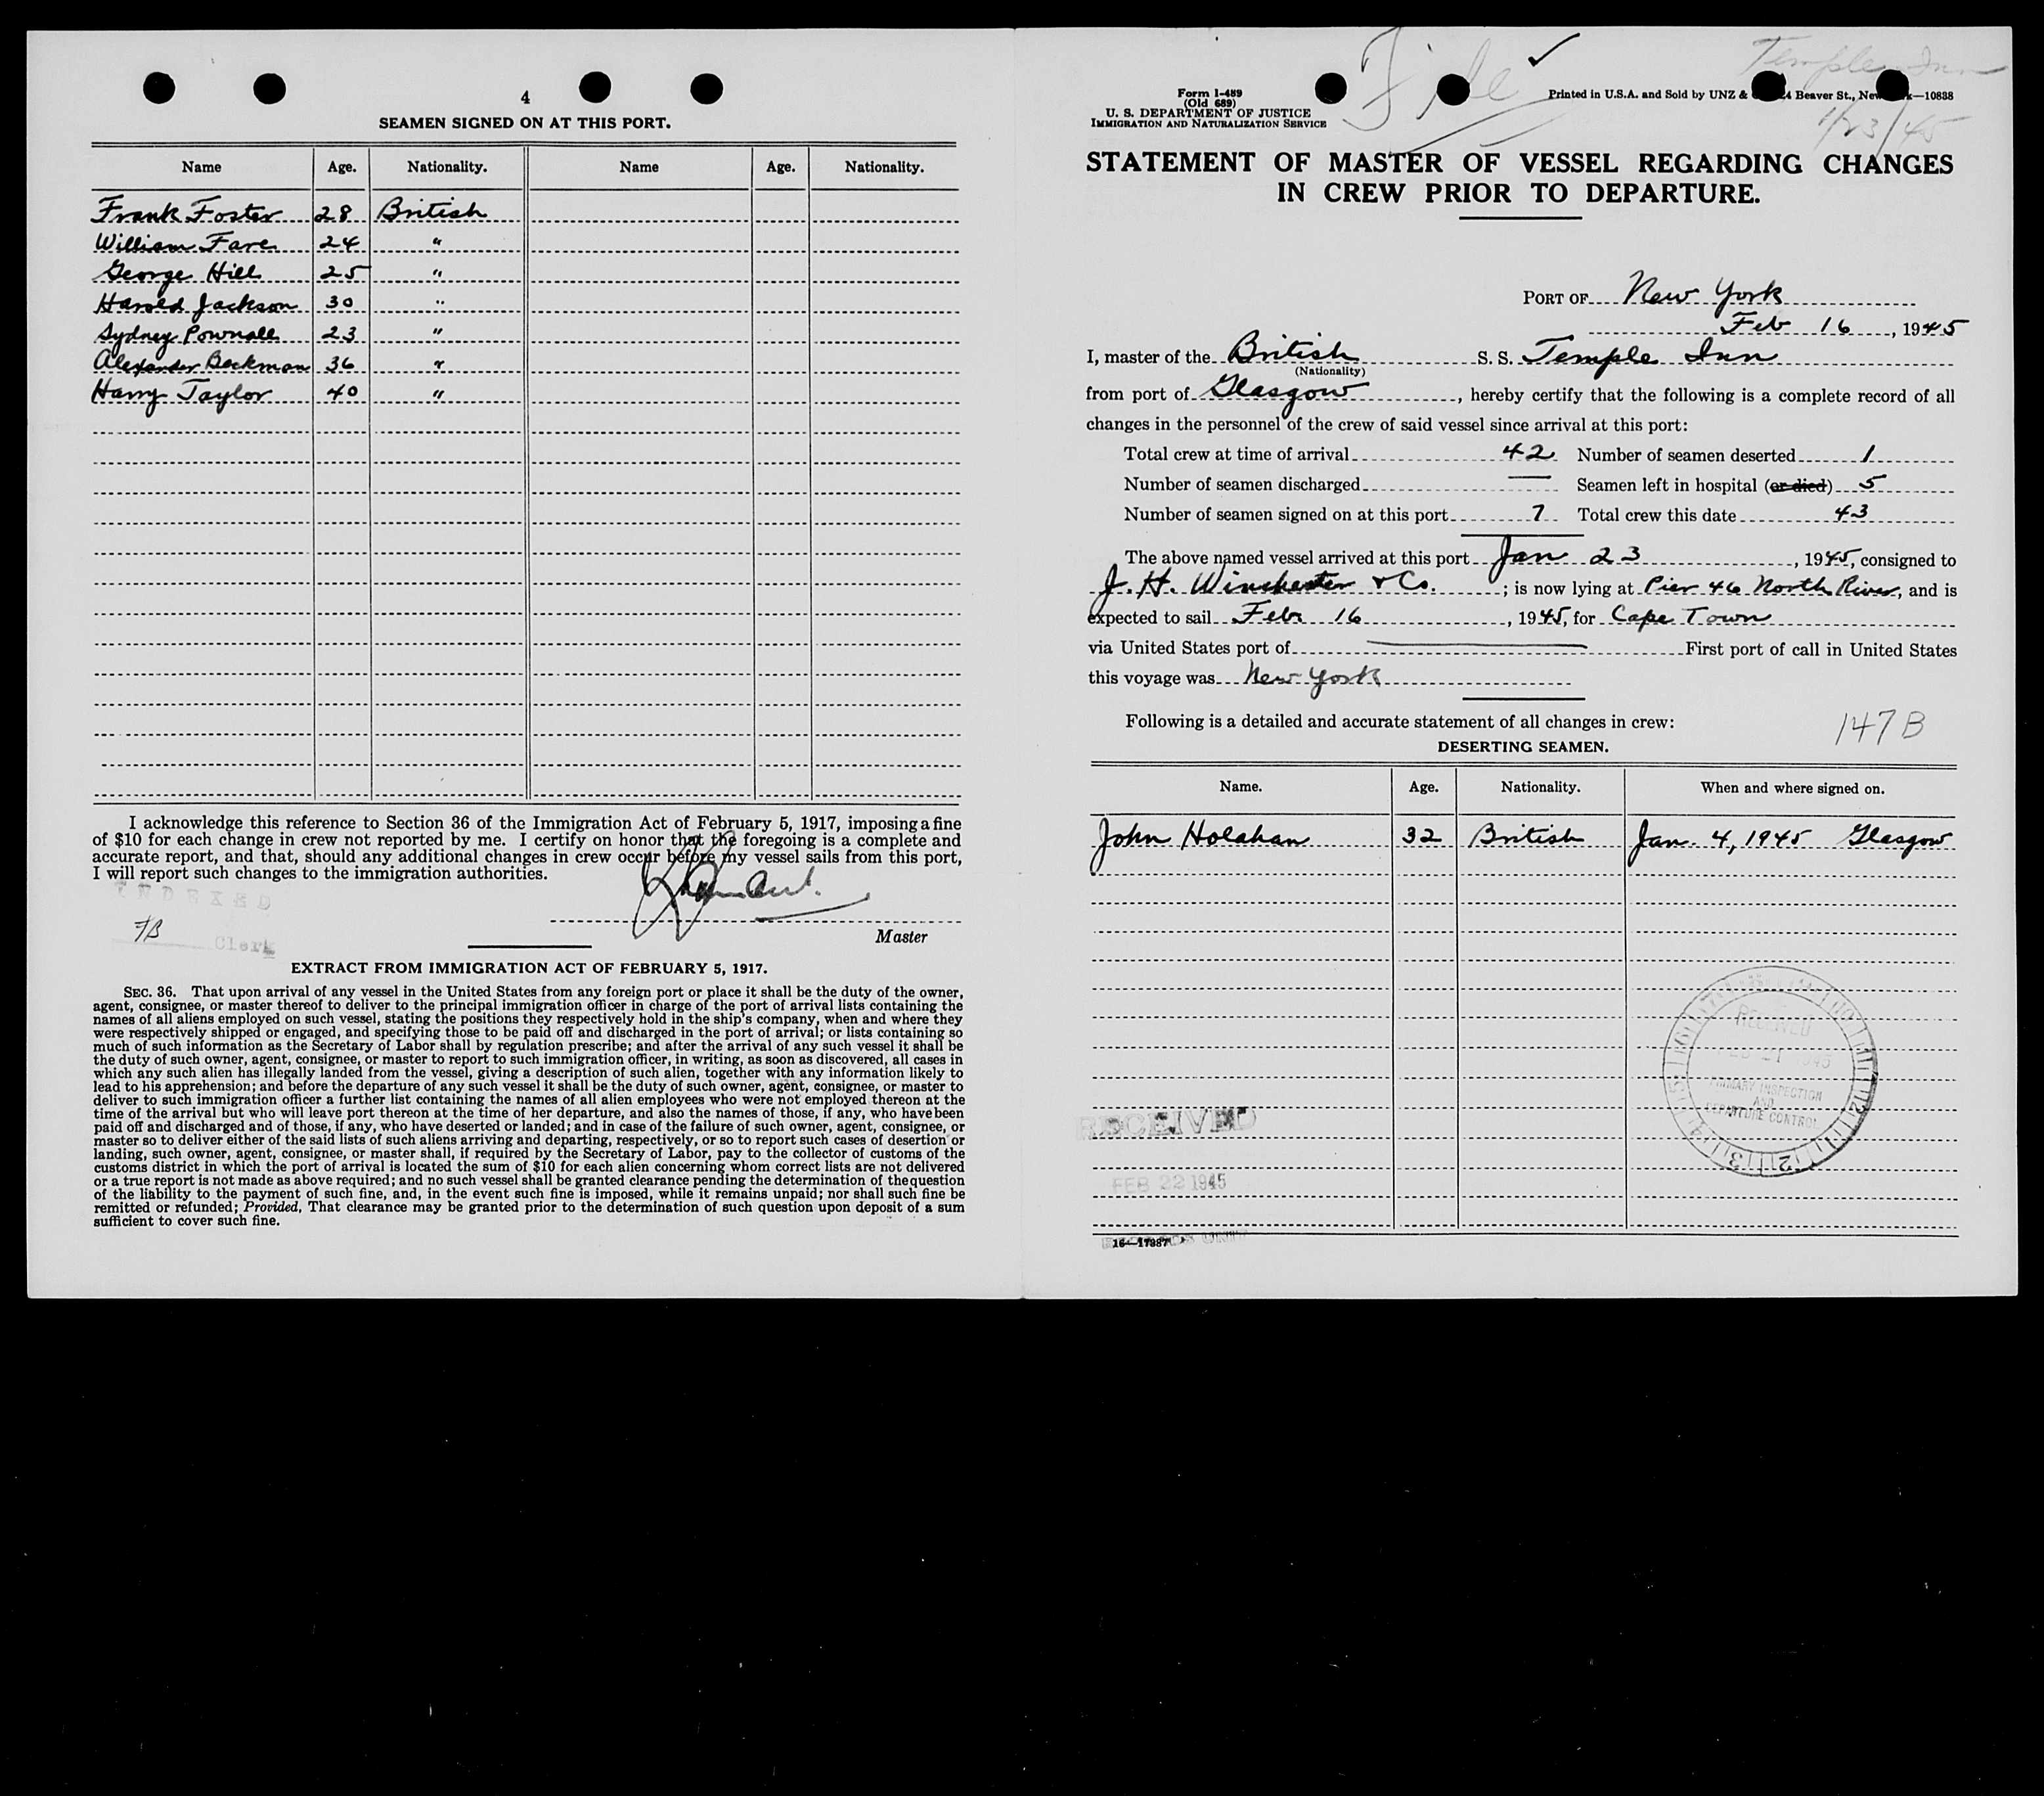 4
SEAMEN SIGNED ON AT THIS PORT.
Name Age. Nationality. Name Age. Nationality.
Frank Foster 28 British
William Fare 24 "
George Hill 25 "
Harold Jackson 30 "
Sydney Pownall 23 "
Alexander Beckman 36 "
Harry Taylor 40 "
I acknowledge this reference to Section 36 of the Immigration Act of February 5, 1917, imposing a fine
of $10 for each change in crew not reported by me. I certify on honor that the foregoing is a complete and
accurate report, and that, should any additional changes in crew occur before my vessel sails from this port,
I will report such changes to the immigration authorities.
INDEXED
FB Clerk
Master
EXTRACT FROM IMMIGRATION ACT OF FEBRUARY 5, 1917.
SEC. 36. That upon arrival of any vessel in the United States from any foreign port or place it shall be the duty of the owner,
agent, consignee, or master thereof to deliver to the principal immigration officer in charge of the port of arrival lists containing the
names of all aliens employed on such vessel, stating the positions they respectively hold in the ship's company, when and where they
were respectively shipped or engaged, and specifying those to be paid off and discharged in the port of arrival; or lists containing so
much of such information as the Secretary of Labor shall by regulation prescribe; and after the arrival of any such vessel it shall be
the duty of such owner, agent, consignee, or master to report to such immigration officer, in writing, as soon as discovered, all cases in
which any such alien has illegally landed from the vessel, giving a description of such alien, together with any information likely to
lead to his apprehension; and before the departure of any such vessel it shall be the duty of such owner, agent, consignee, or master to
deliver to such immigration officer a further list containing the names of all alien employees who were not employed thereon at the
time of the arrival but who will leave port thereon at the time of her departure, and also the names of those, if any, who have been
paid off and discharged and of those, if any, who have deserted or landed; and in case of the failure of such owner, agent, consignee, or
master so to deliver either of the said lists of such aliens arriving and departing, respectively, or so to report such cases of desertion or
landing, such owner, agent, consignee, or master shall, if required by the Secretary of Labor, pay to the collector of customs of the
customs district in which the port of arrival is located the sum of $10 for each alien concerning whom correct lists are not delivered
or a true report is not made as above required; and no such vessel shall be granted clearance pending the determination of the question
of the liability to the payment of such fine, and, in the event such fine is imposed, while it remains unpaid; nor shall such fine be
remitted or refunded; Provided, That clearance may be granted prior to the determination of such question upon deposit of a sum
sufficient to cover such fine.
File
Temple Inn
1/23/45
Form I-489
(Old 689)
U. S. DEPARTMENT OF JUSTICE
IMMIGRATION AND NATURALIZATION SERVICE
Printed in U.S.A. and Sold by UNZ & Beaver St., New —10838
STATEMENT OF MASTER OF VESSEL REGARDING CHANGES
IN CREW PRIOR TO DEPARTURE.
PORT OF New York
Feb 16, 1945
I, master of the British S. S. Temple Inn
(Nationality)
from port of Glasgow, hereby certify that the following is a complete record of all
changes in the personnel of the crew of said vessel since arrival at this port:
Total crew at time of arrival 42 Number of seamen deserted 1
Number of seamen discharged — Seamen left in hospital (or died) 5
Number of seamen signed on at this port 7 Total crew this date 43
The above named vessel arrived at this port Jan 23, 1945, consigned to
J. H. Winchester & Co.; is now lying at Pier 46 North River, and is
expected to sail Feb 16, 1945, for Cape Town
via United States port of — First port of call in United States
this voyage was New York
Following is a detailed and accurate statement of all changes in crew:
147B
DESERTING SEAMEN.
Name. Age. Nationality. When and where signed on.
John Holahan 32 British Jan. 4, 1945 Glasgow
RECEIVED
1945
PRIMARY INSPECTION
AND
DEPARTURE CONTROL
RECEIVED
FEB 22 1945
16—17887